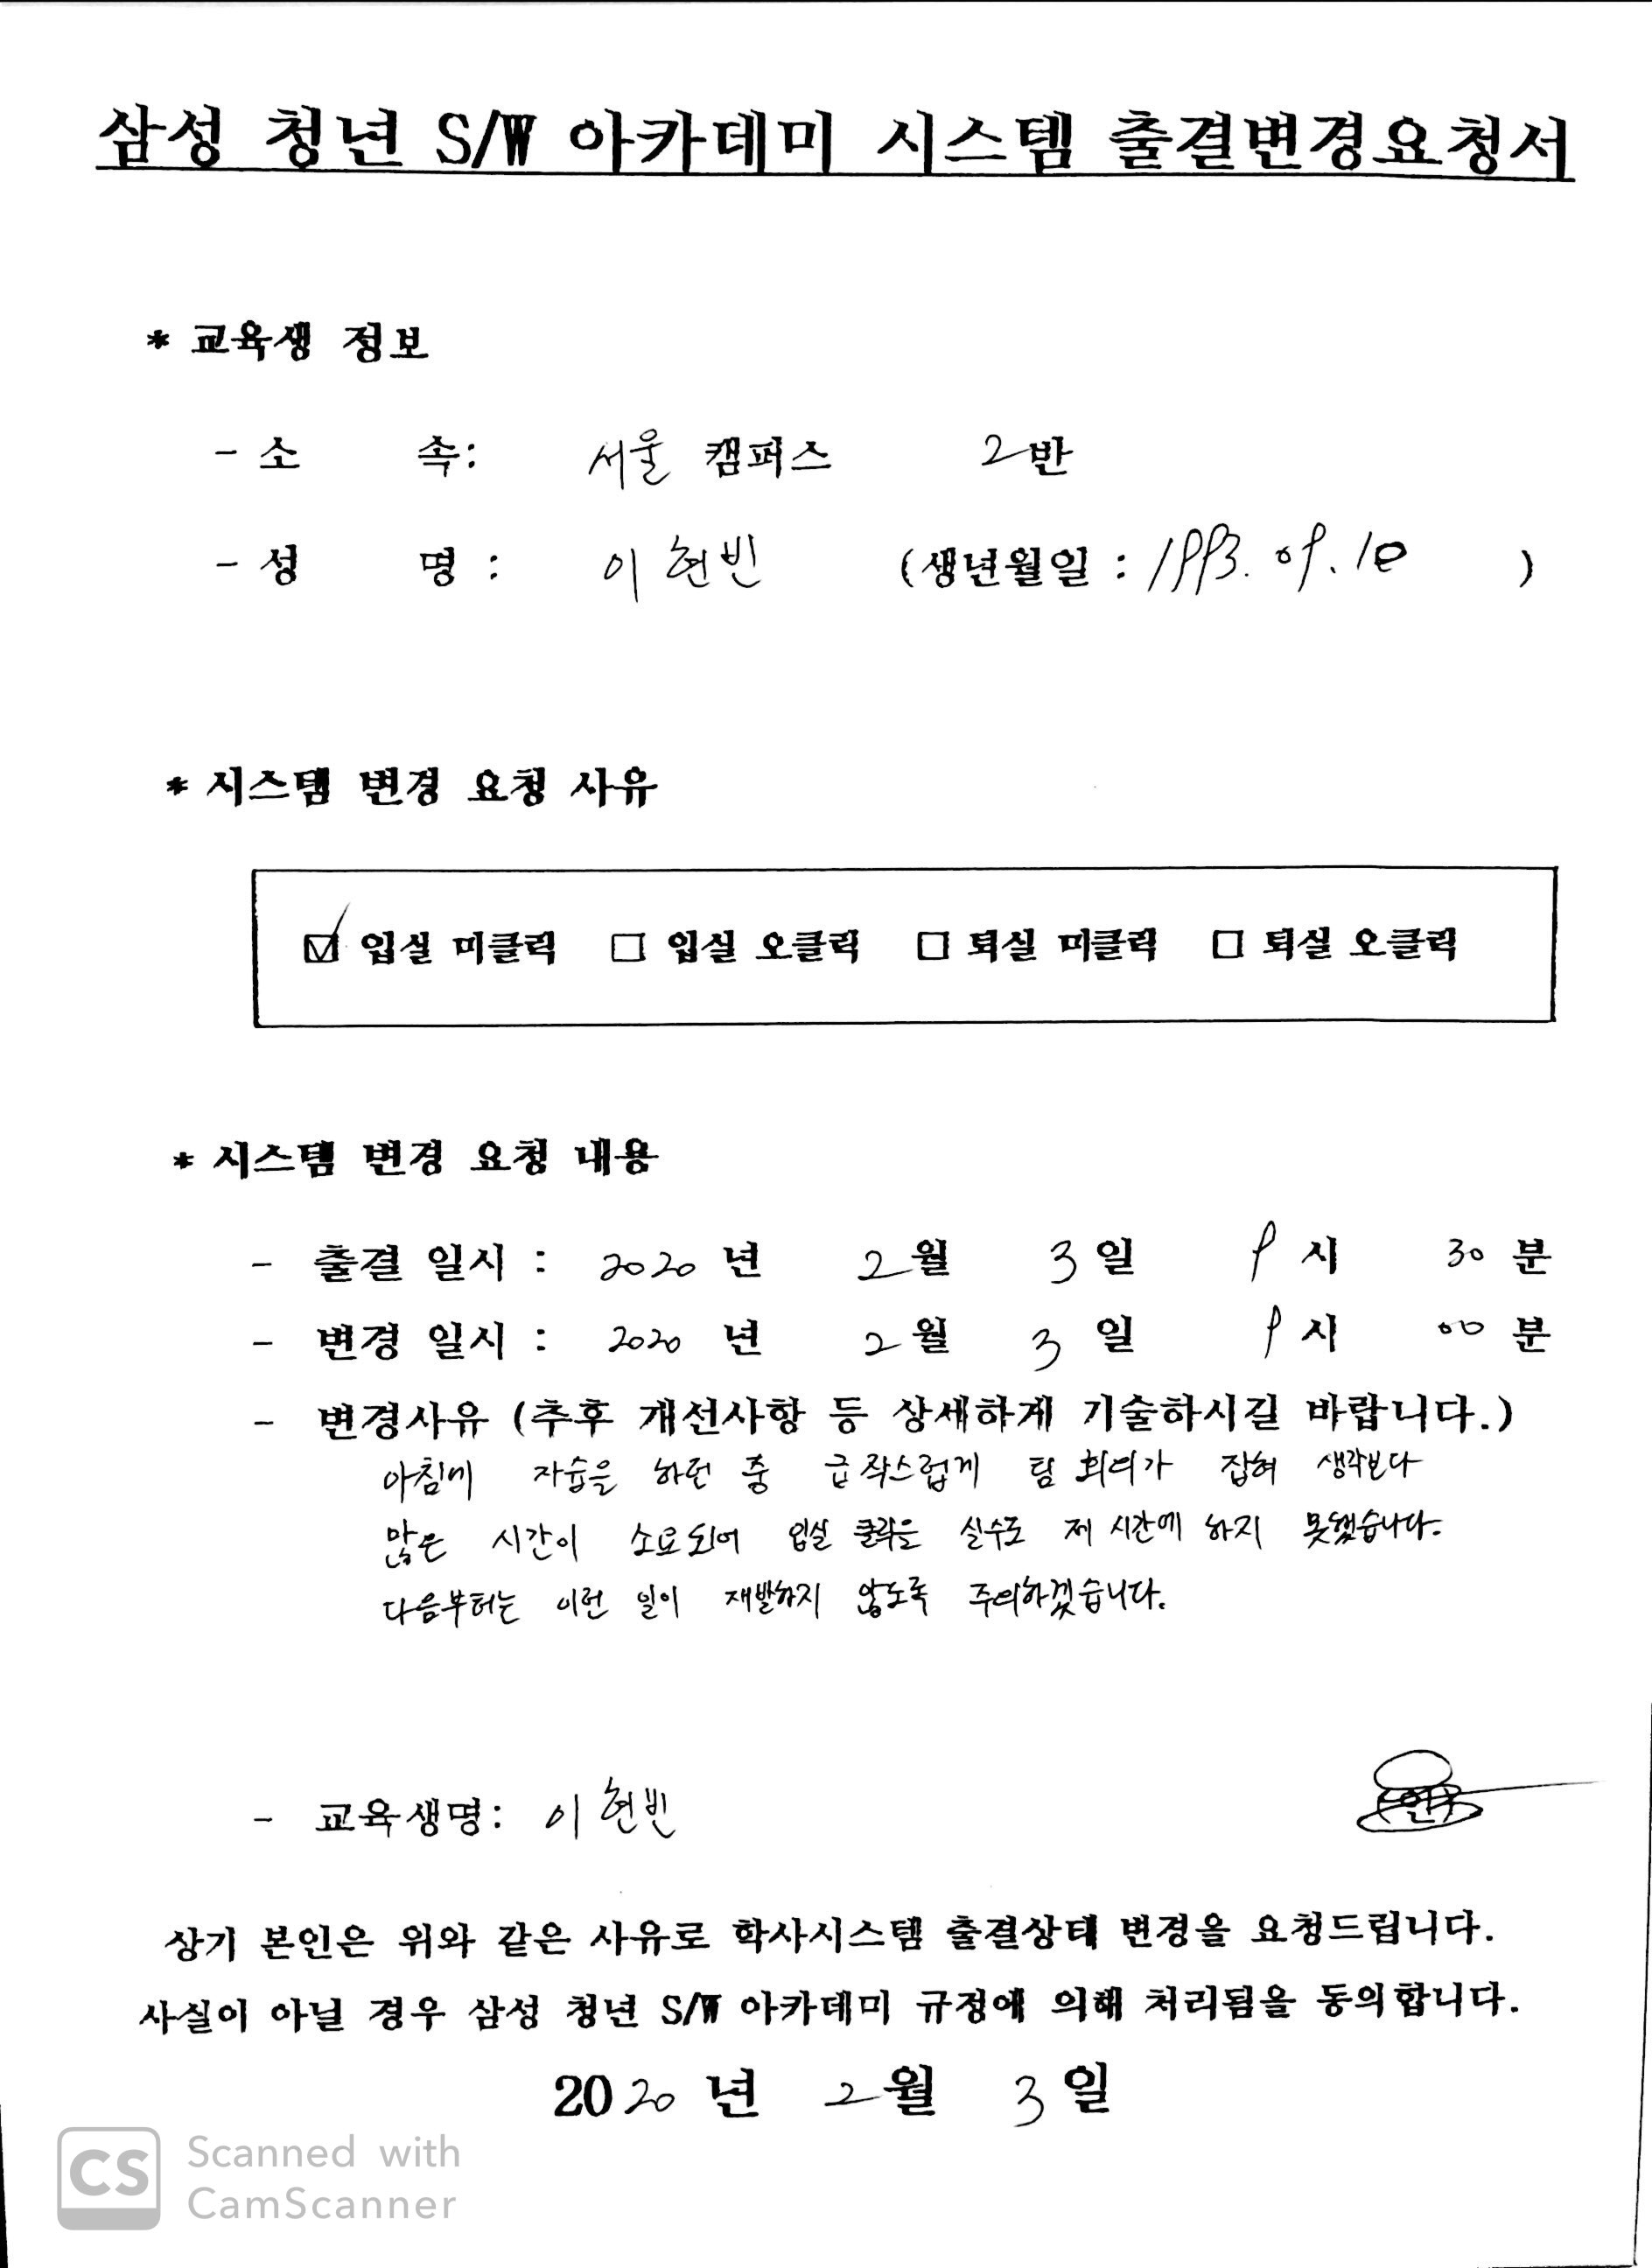 삼성 청년 S/W 아카데미 시스템 출결변경요청서
* 교육생 정보
- 소 속: 서울 캠퍼스 2반
- 성 명 : 이현빈 (생년월일 : 1993. 09. 10 )
* 시스템 변경 요청 사유
☑ 입실 미클릭 □ 입실 오클릭 □ 퇴실 미클릭 □ 퇴실 오클릭
* 시스템 변경 요청 내용
- 출결 일시 : 2020 년 2 월 3 일 9 시 30 분
- 변경 일시 : 2020 년 2 월 3 일 9 시 00 분
- 변경사유 (추후 개선사항 등 상세하게 기술하시길 바랍니다.)
아침에 자습을 하던 중 급작스럽게 팀 회의가 잡혀 생각보다
많은 시간이 소요되어 입실 클릭을 실수로 제 시간에 하지 못했습니다.
다음부터는 이런 일이 재발하지 않도록 주의하겠습니다.
- 교육생명: 이현빈 (인)
상기 본인은 위와 같은 사유로 학사시스템 출결상태 변경을 요청드립니다.
사실이 아닐 경우 삼성 청년 S/W 아카데미 규정에 의해 처리됨을 동의합니다.
2020 년 2 월 3 일
CS Scanned with
CamScanner